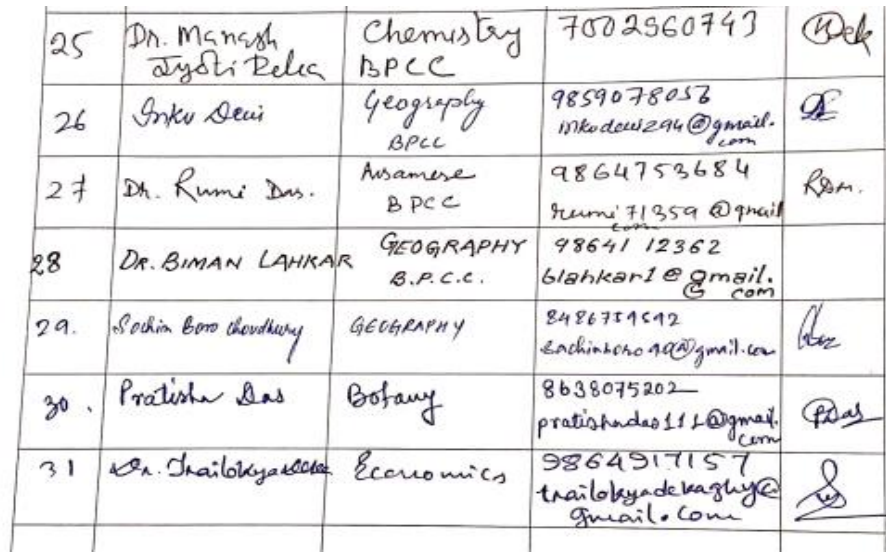 25 Dr. Manash Chemistry 7002960743
Jyoti Deka BPCC
26 Inku Devi Geography 9859078056
BPCC inkudevi294@gmail.
com
27 Dr. Rumi Das. Assamese 9864753684
BPCC rumi71359@gmail
com
28 DR. BIMAN LAHKAR GEOGRAPHY 98641 12362
B.P.C.C. blahkar1@gmail.
com
29. Sachin Boro Choudhury GEOGRAPHY
sachinboro90@gmail.com
30. Pratisha Das Botany 8638075202
pratishadas111@gmail. PDas
com
31 Dr. Trailokya Deka Economics 9864917157
trailokyadekaghy@
gmail.com